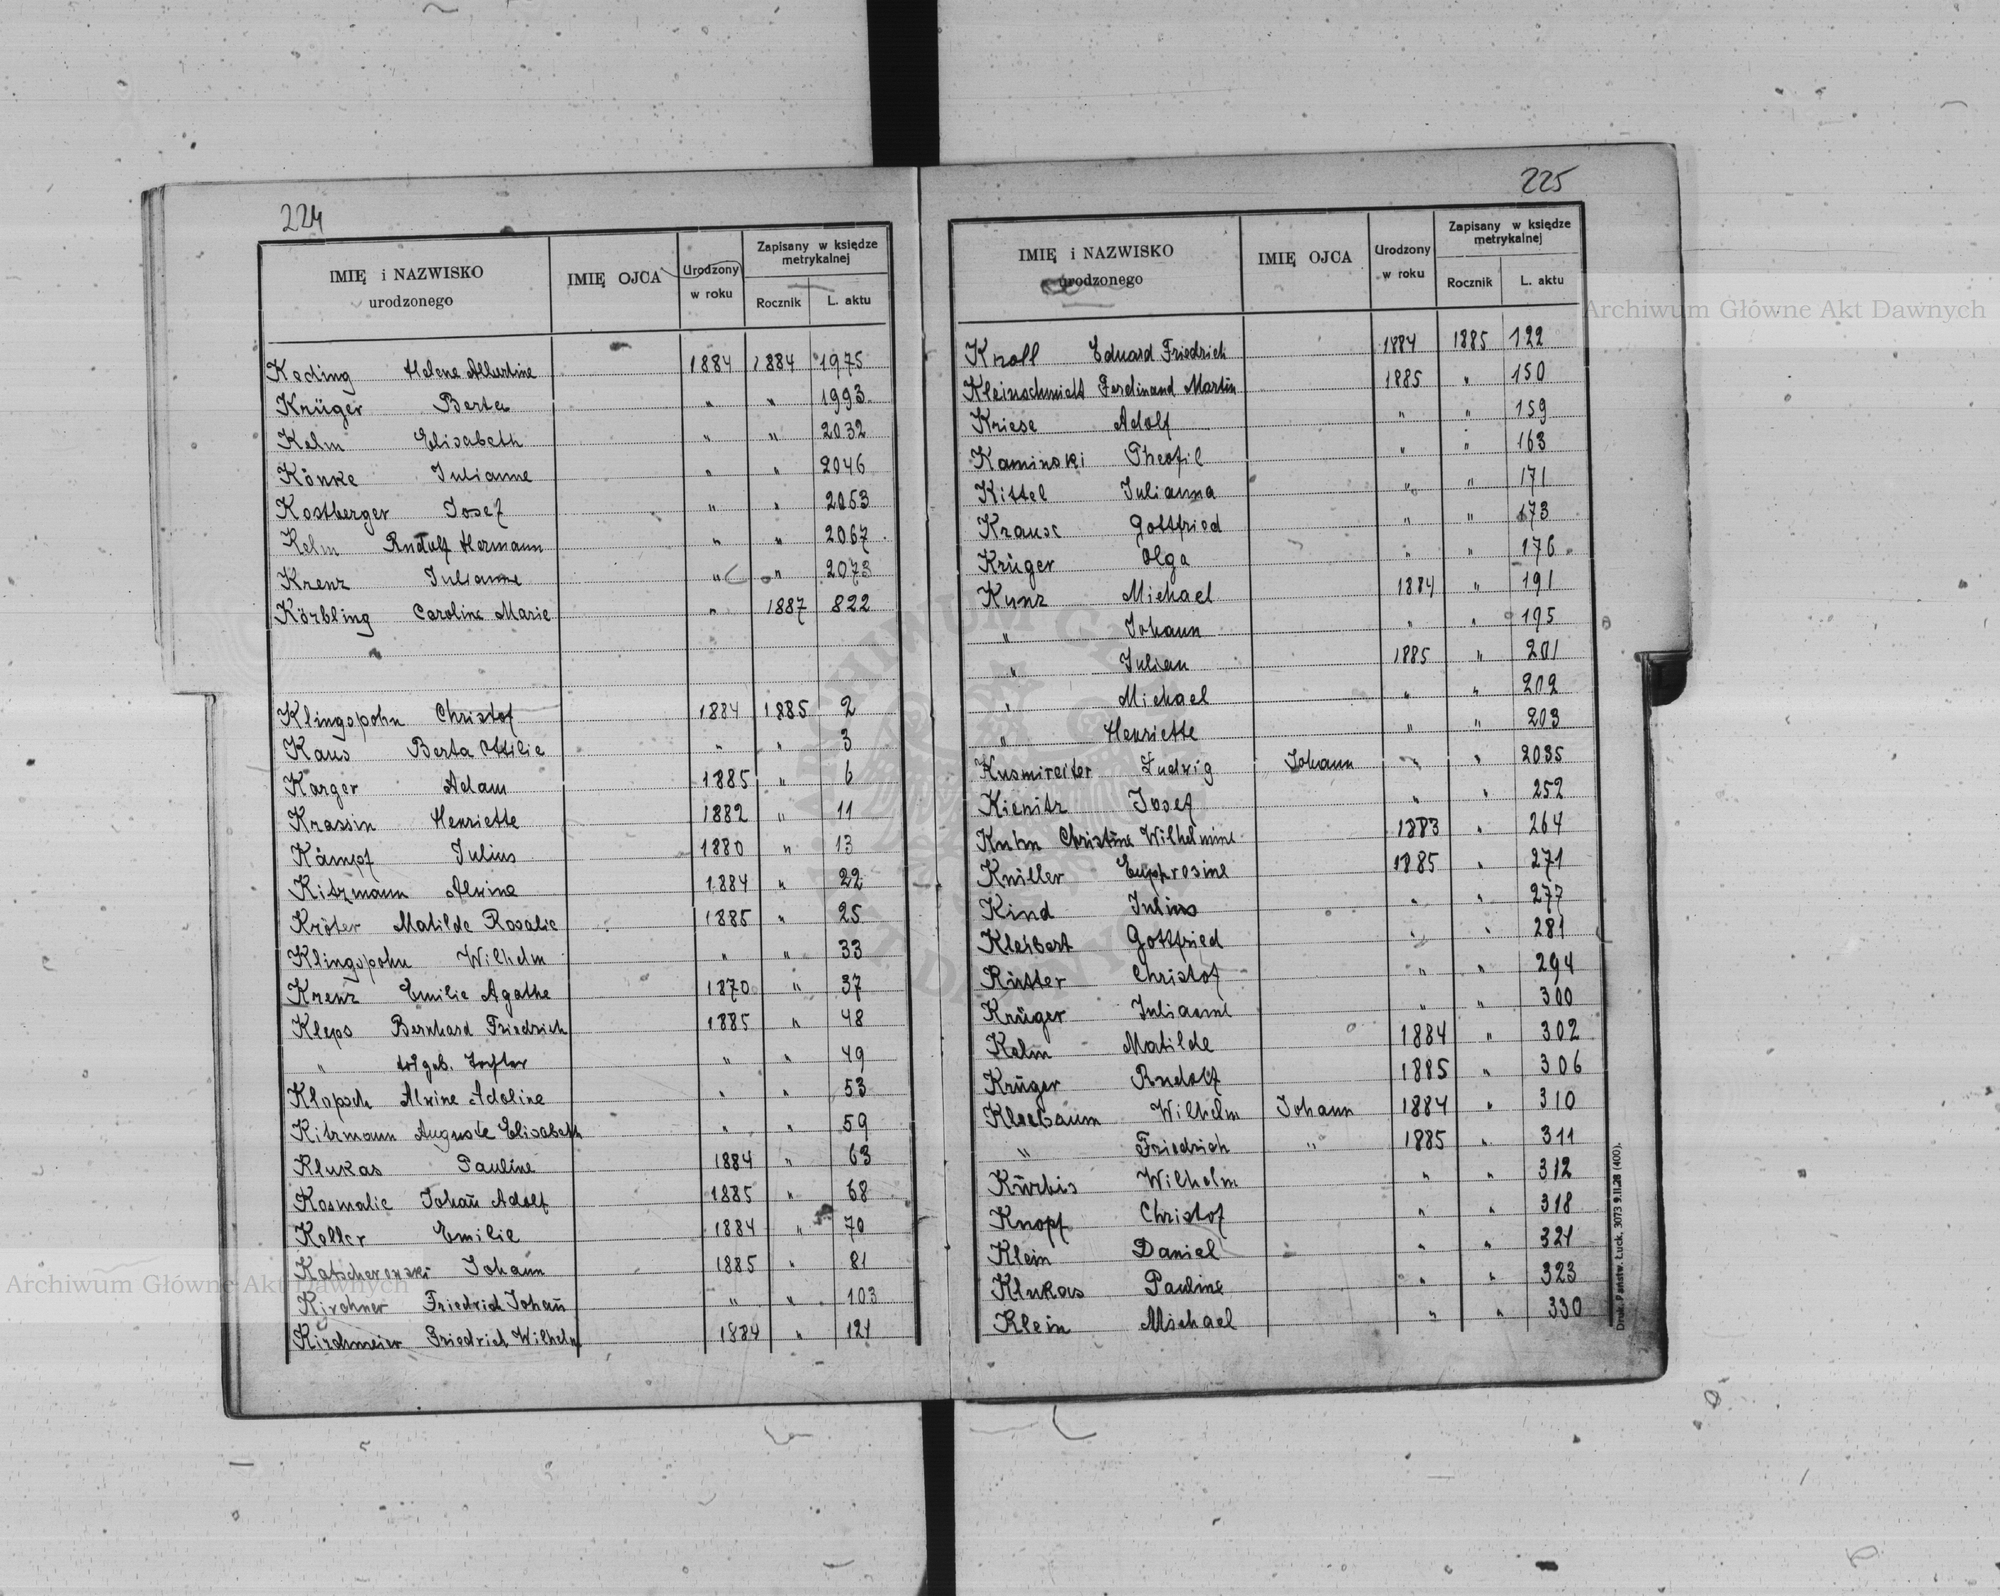 224
IMIĘ i NAZWISKO urodzonego IMIĘ OJCA Urodzony w roku Zapisany w księdze metrykalnej Rocznik L. aktu
Keding Helene Albertine 1884 1884 1975
Krüger Berta " " 1993
Kelm Elisabeth " " 2032
Könke Julianne " " 2046
Kostberger Josef " " 2053
Kelm Rudolf Hermann " " 2067
Krenz Julianne " " 2073
Körbling Caroline Marie " 1887 822
Klingspohn Christof 1884 1885 2
Kaus Berta Ottilie " " 3
Karger Adam 1885 " 6
Krassin Henriette 1882 " 11
Kämpf Julius 1880 " 13
Kitzmann Alwine 1884 " 22
Kröter Matilde Rosalie 1885 " 25
Klingspohn Wilhelm " " 33
Krenz Emilie Agathe 1870 " 37
Kleps Bernhard Friedrich 1885 " 48
" totgeb. Tochter " " 49
Klapsch Alwine Adoline " " 53
Kitzmann Auguste Elisabeth " " 59
Klukas Pauline 1884 " 63
Kosmalie Johañ Adolf 1885 " 68
Keller Emilie 1884 " 70
Katscherowski Johann 1885 " 81
Kirchner Friedrich Johañ " " 103
Kirchmeier Friedrich Wilhelm 1884 " 121
225
IMIĘ i NAZWISKO urodzonego IMIĘ OJCA Urodzony w roku Zapisany w księdze metrykalnej Rocznik L. aktu
Kroll Eduard Friedrich 1884 1885 122
Kleinschmidt Ferdinand Martin 1885 " 150
Kriese Adolf " " 159
Kaminski Theofil " " 163
Kittel Julianna " " 171
Krause Gottfried " " 173
Krüger Olga " " 176
Kunz Michael 1884 " 191
" Johann " " 195
" Julian 1885 " 201
" Michael " " 202
" Henriette " " 203
Kusmireiter Ludwig Johann " " 2035
Kienitz Josef " " 252
Kuhn Christine Wilhelmine 1883 " 264
Kniller Euphrosine 1885 " 271
Kind Julius " " 277
Kleibert Gottfried " " 281
Rütter Christof " " 294
Krüger Julianne " " 300
Kelm Matilde 1884 " 302
Krüger Rudolf 1885 " 306
Kleebaum Wilhelm Johann 1884 " 310
" Friedrich " 1885 " 311
Kürbis Wilhelm " " 312
Knopf Christof " " 318
Klein Daniel " " 321
Klukas Pauline " " 323
Klein Michael " " 330
Druk. Państw. Łuck. 3073 9.II.28 (400).
Archiwum Główne Akt Dawnych
Archiwum Główne Akt Dawnych